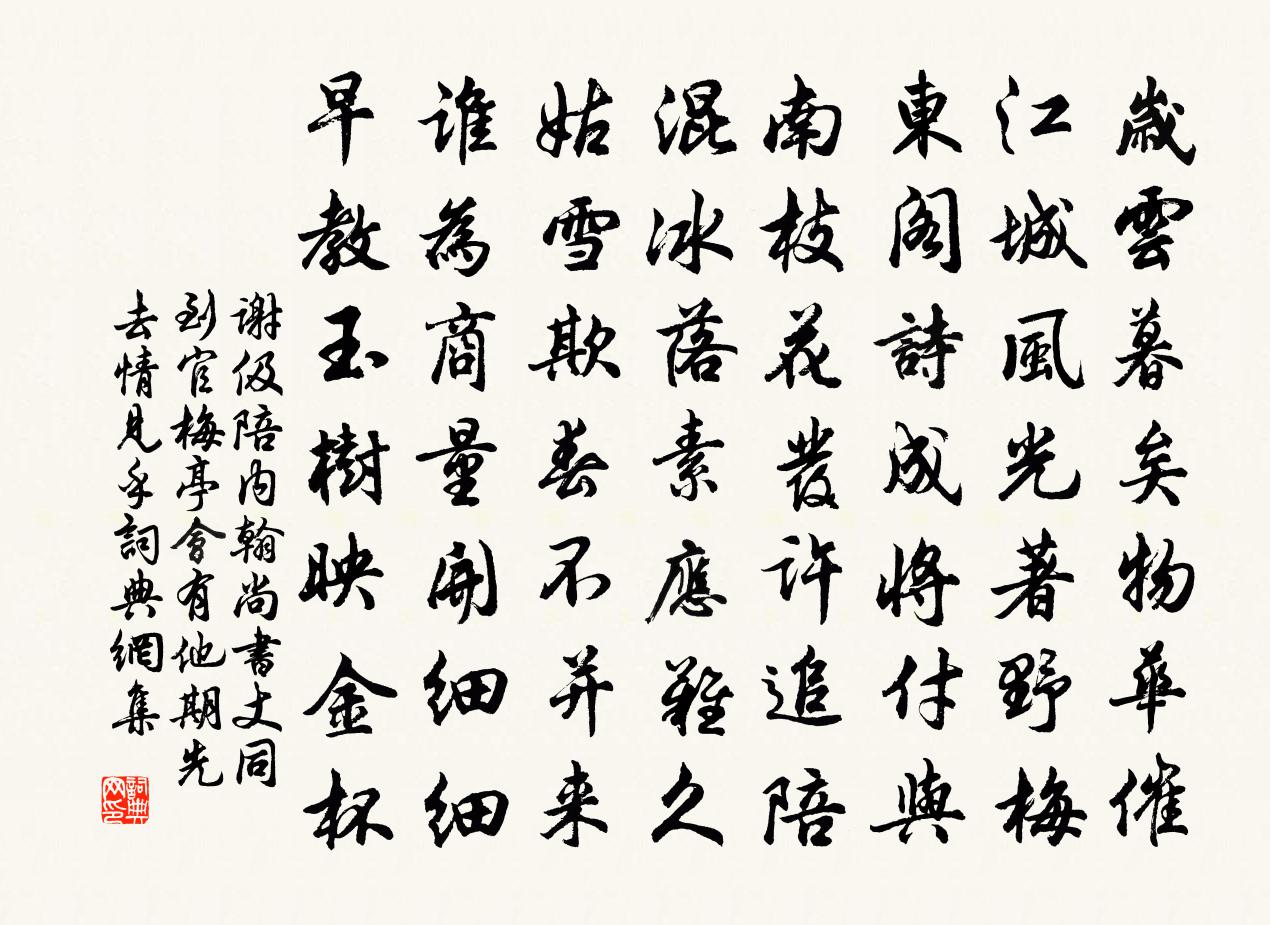 歲雲暮矣物華催
江城風光著野梅
東閣詩成將付與
南枝花發許追陪
混冰落素應難久
姑雪欺春不并来
誰為商量開細細
早教玉樹映金杯
謝伋陪内翰尚書丈同
到官梅亭會有他期先
去情見乎詞典網集
詞典网印